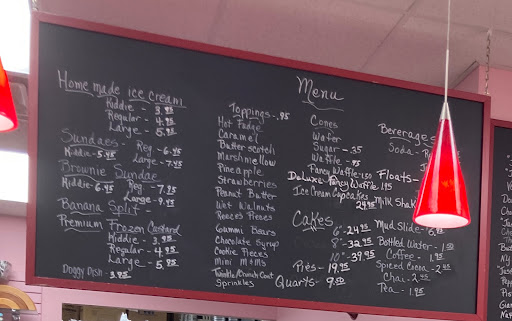 Menu
Home made ice cream
Kiddie - 3.95
Regular - 4.95
Large - 5.95
Sundaes - Reg. - 6.45
Kiddie - 5.45 Large - 7.45
Brownie Sundae
Kiddie - 6.45 Reg - 7.95
Large - 9.45
Banana Split -
Premium Frozen Custard
Kiddie - 3.95
Regular - 4.95
Large - 5.95
Doggy Dish - 3.95
Toppings - .95
Hot Fudge
Caramel
Butterscotch
Marshmellow
Pineapple
Strawberries
Peanut Butter
Wet Walnuts
Reeces Pieces
Gummi Bears
Chocolate Syrup
Cookie Pieces
Mini M+Ms
Twinkle Crunch Coat
Sprinkles
Cones
Wafer
Sugar - .35
Waffle - .95
Fancy Waffle 1.50
DeLuxe Fancy Waffle 1.95
Ice Cream Cupcakes
Cakes
6" - 24.95
8" - 32.95
10" - 39.95
Pies - 19.95
Quarts - 9.50
Beverages
Soda -
Floats -
Milk Shak
Mud Slide - 6.95
Bottled Water - 1.50
Coffee - 1.95
Spiced Cocoa - 2.45
Chai - 2.45
Tea - 1.95